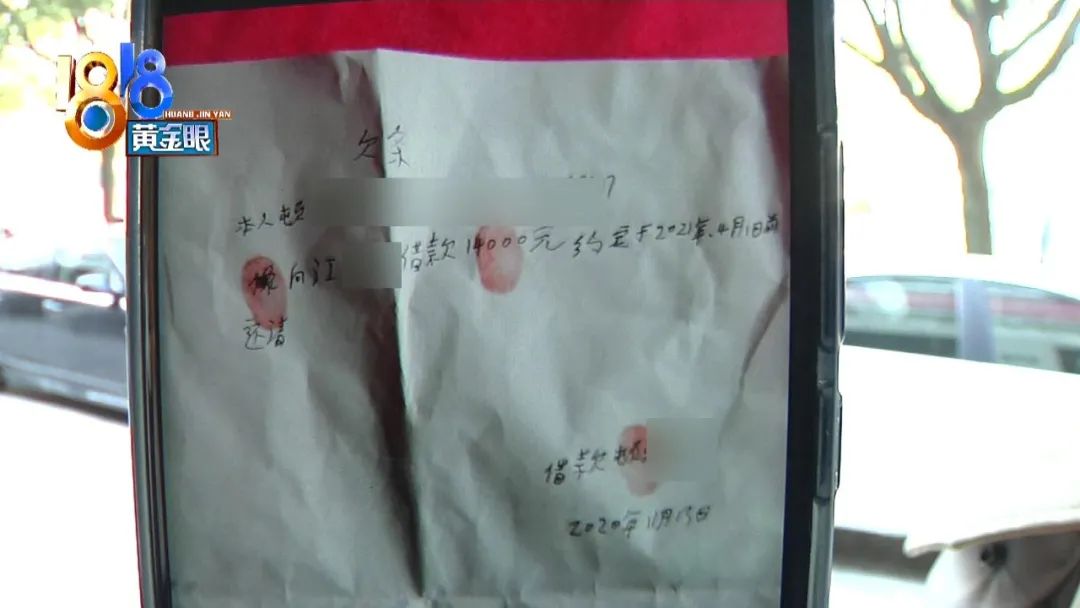 1818
HUANG JIN YAN
黄金眼
欠条
7
本人
借款14000元约定于2021年4月1日前
向江
还清
借款
2020年11月15日